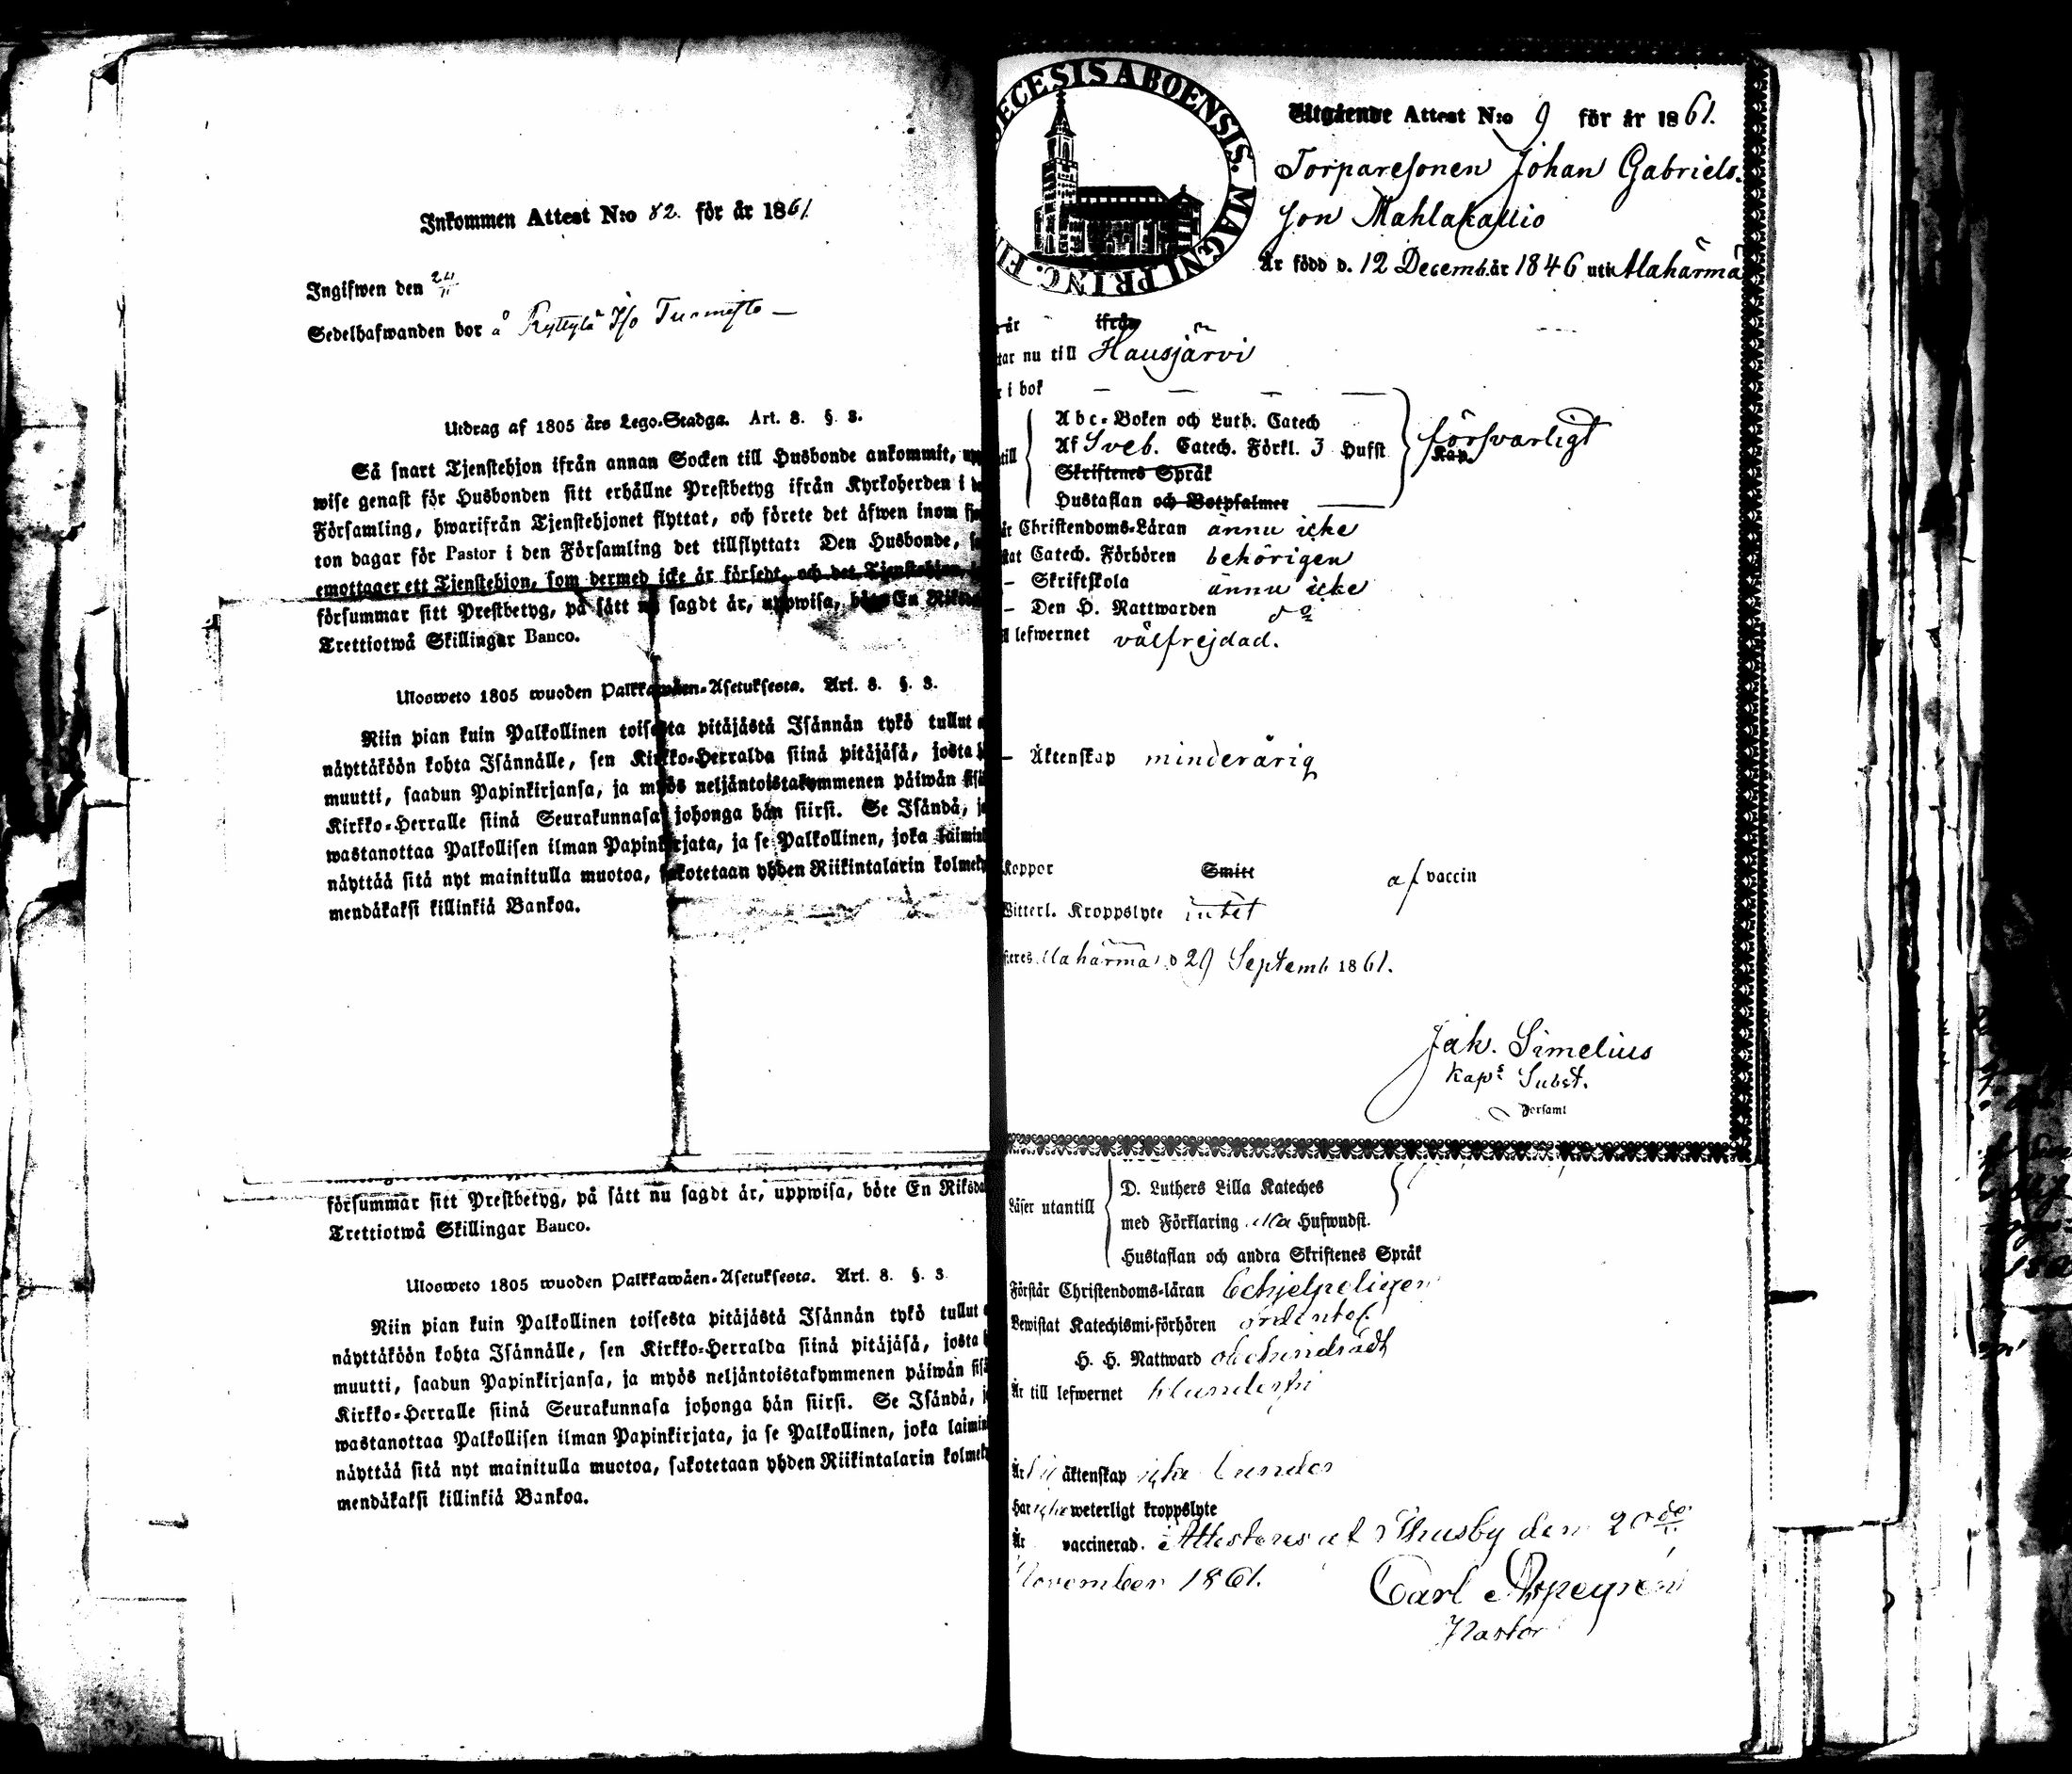 Inkommen Attest N:o 82. för år 1861.
Ingifwen den 24/11
Sedelhafwanden bor å Ryttylä Iso Tuomisto —
Utdrag af 1805 års Lego-Stadga. Art. 8. §. 3.
Så snart Tjenstehjon ifrån annan Socken till Husbonde ankommit,
wise genast för Husbonden sitt erhållne Prestbetyg ifrån Kyrkoherden i
Församling, hwarifrån Tjenstehjonet flyttat, och förete det äfwen inom
ton dagar för Pastor i den Församling det tillflyttat: Den Husbonde,
emottager ett Tjenstehjon, som dermed icke är försedt, och det Tjenstehjon,
försummar sitt Prestbetyg, på sätt sagdt är, uppwisa, böte En Riksd
Trettiotwå Skillingar Banco.
Ulosweto 1805 wuoden Palkkawäen-Asetuksesta. Art. 8. §. 3.
Niin pian kuin Palkollinen toisesta pitäjästä Isännän tykö tullut
näyttäköön kohta Isännälle, sen Kirkko-Herralda siinä pitäjäsä, josta
muutti, saadun Papinkirjansa, ja myös neljäntoistakymmenen päiwän sisä
Kirkko-Herralle siinä Seurakunnasa johonga hän siirsi. Se Isändä, j
wastanottaa Palkollisen ilman Papinkirjata, ja se Palkollinen, joka laimin
näyttää sitä nyt mainitulla muotoa, sakotetaan yhden Riikintalarin kolmeky
mendäkaksi killinkiä Bankoa.
försummar sitt Prestbetyg, på sätt nu sagdt är, uppwisa, böte En Riksda
Trettiotwå Skillingar Banco.
Ulosweto 1805 wuoden Palkkawäen-Asetuksesta. Art. 8. §. 3
Niin pian kuin Palkollinen toisesta pitäjästä Isännän tykö tullut
näyttäköön kohta Isännälle, sen Kirkko-Herralda siinä pitäjäsä, josta
muutti, saadun Papinkirjansa, ja myös neljäntoistakymmenen päiwän sisä
Kirkko-Herralle siinä Seurakunnasa johonga hän siirsi. Se Isändä, j
wastanottaa Palkollisen ilman Papinkirjata, ja se Palkollinen, joka laimin
näyttää sitä nyt mainitulla muotoa, sakotetaan yhden Riikintalarin kolmeky
mendäkaksi killinkiä Bankoa.
ECESIS ABOENSIS. MAGNI PRINC. FI
Utgående Attest N:o 9 för år 1861.
Torparesonen Johan Gabriels-
son Mahlakallio
Är född d. 12 Decemb. år 1846 uti Alahärmä
är ifrån
tar nu till Hausjärvi
r i bok — — — —
Abc-Boken och Luth. Catech
till Af Sveb. Catech. Förkl. 3 Hufst försvarligt
Kap.
Skriftenes Språk
Hustaflan och Botpsalmer
år Christendoms-Läran ännu icke
stat Catech. Förhören behörigen
— Skriftskola ännu icke
— Den H. Nattwarden do
l lefwernet välfrejdad.
— Äktenskap minderårig
Koppor Smitt af vaccin
Witterl. Kroppslyte intet
steras Alahärmä d 29 Septemb 1861.
Jak. Simelius
Kaps Subst.
Forsaml
D. Luthers Lilla Kateches
Läser utantill med Förklaring Hufwudst.
Hustaflan och andra Skriftenes Språk
Förstår Christendoms-läran behjelpeligen
Bewistat Katechismi-förhören ordentel.
H. H. Nattward obehindradt
Är till lefwernet klanderfri
Är äktenskap icke bunden
Har icke weterligt kroppslyte
Är vaccinerad. Attesteras af Thusby den 20de
November 1861. Carl Aspegrén
Pastor